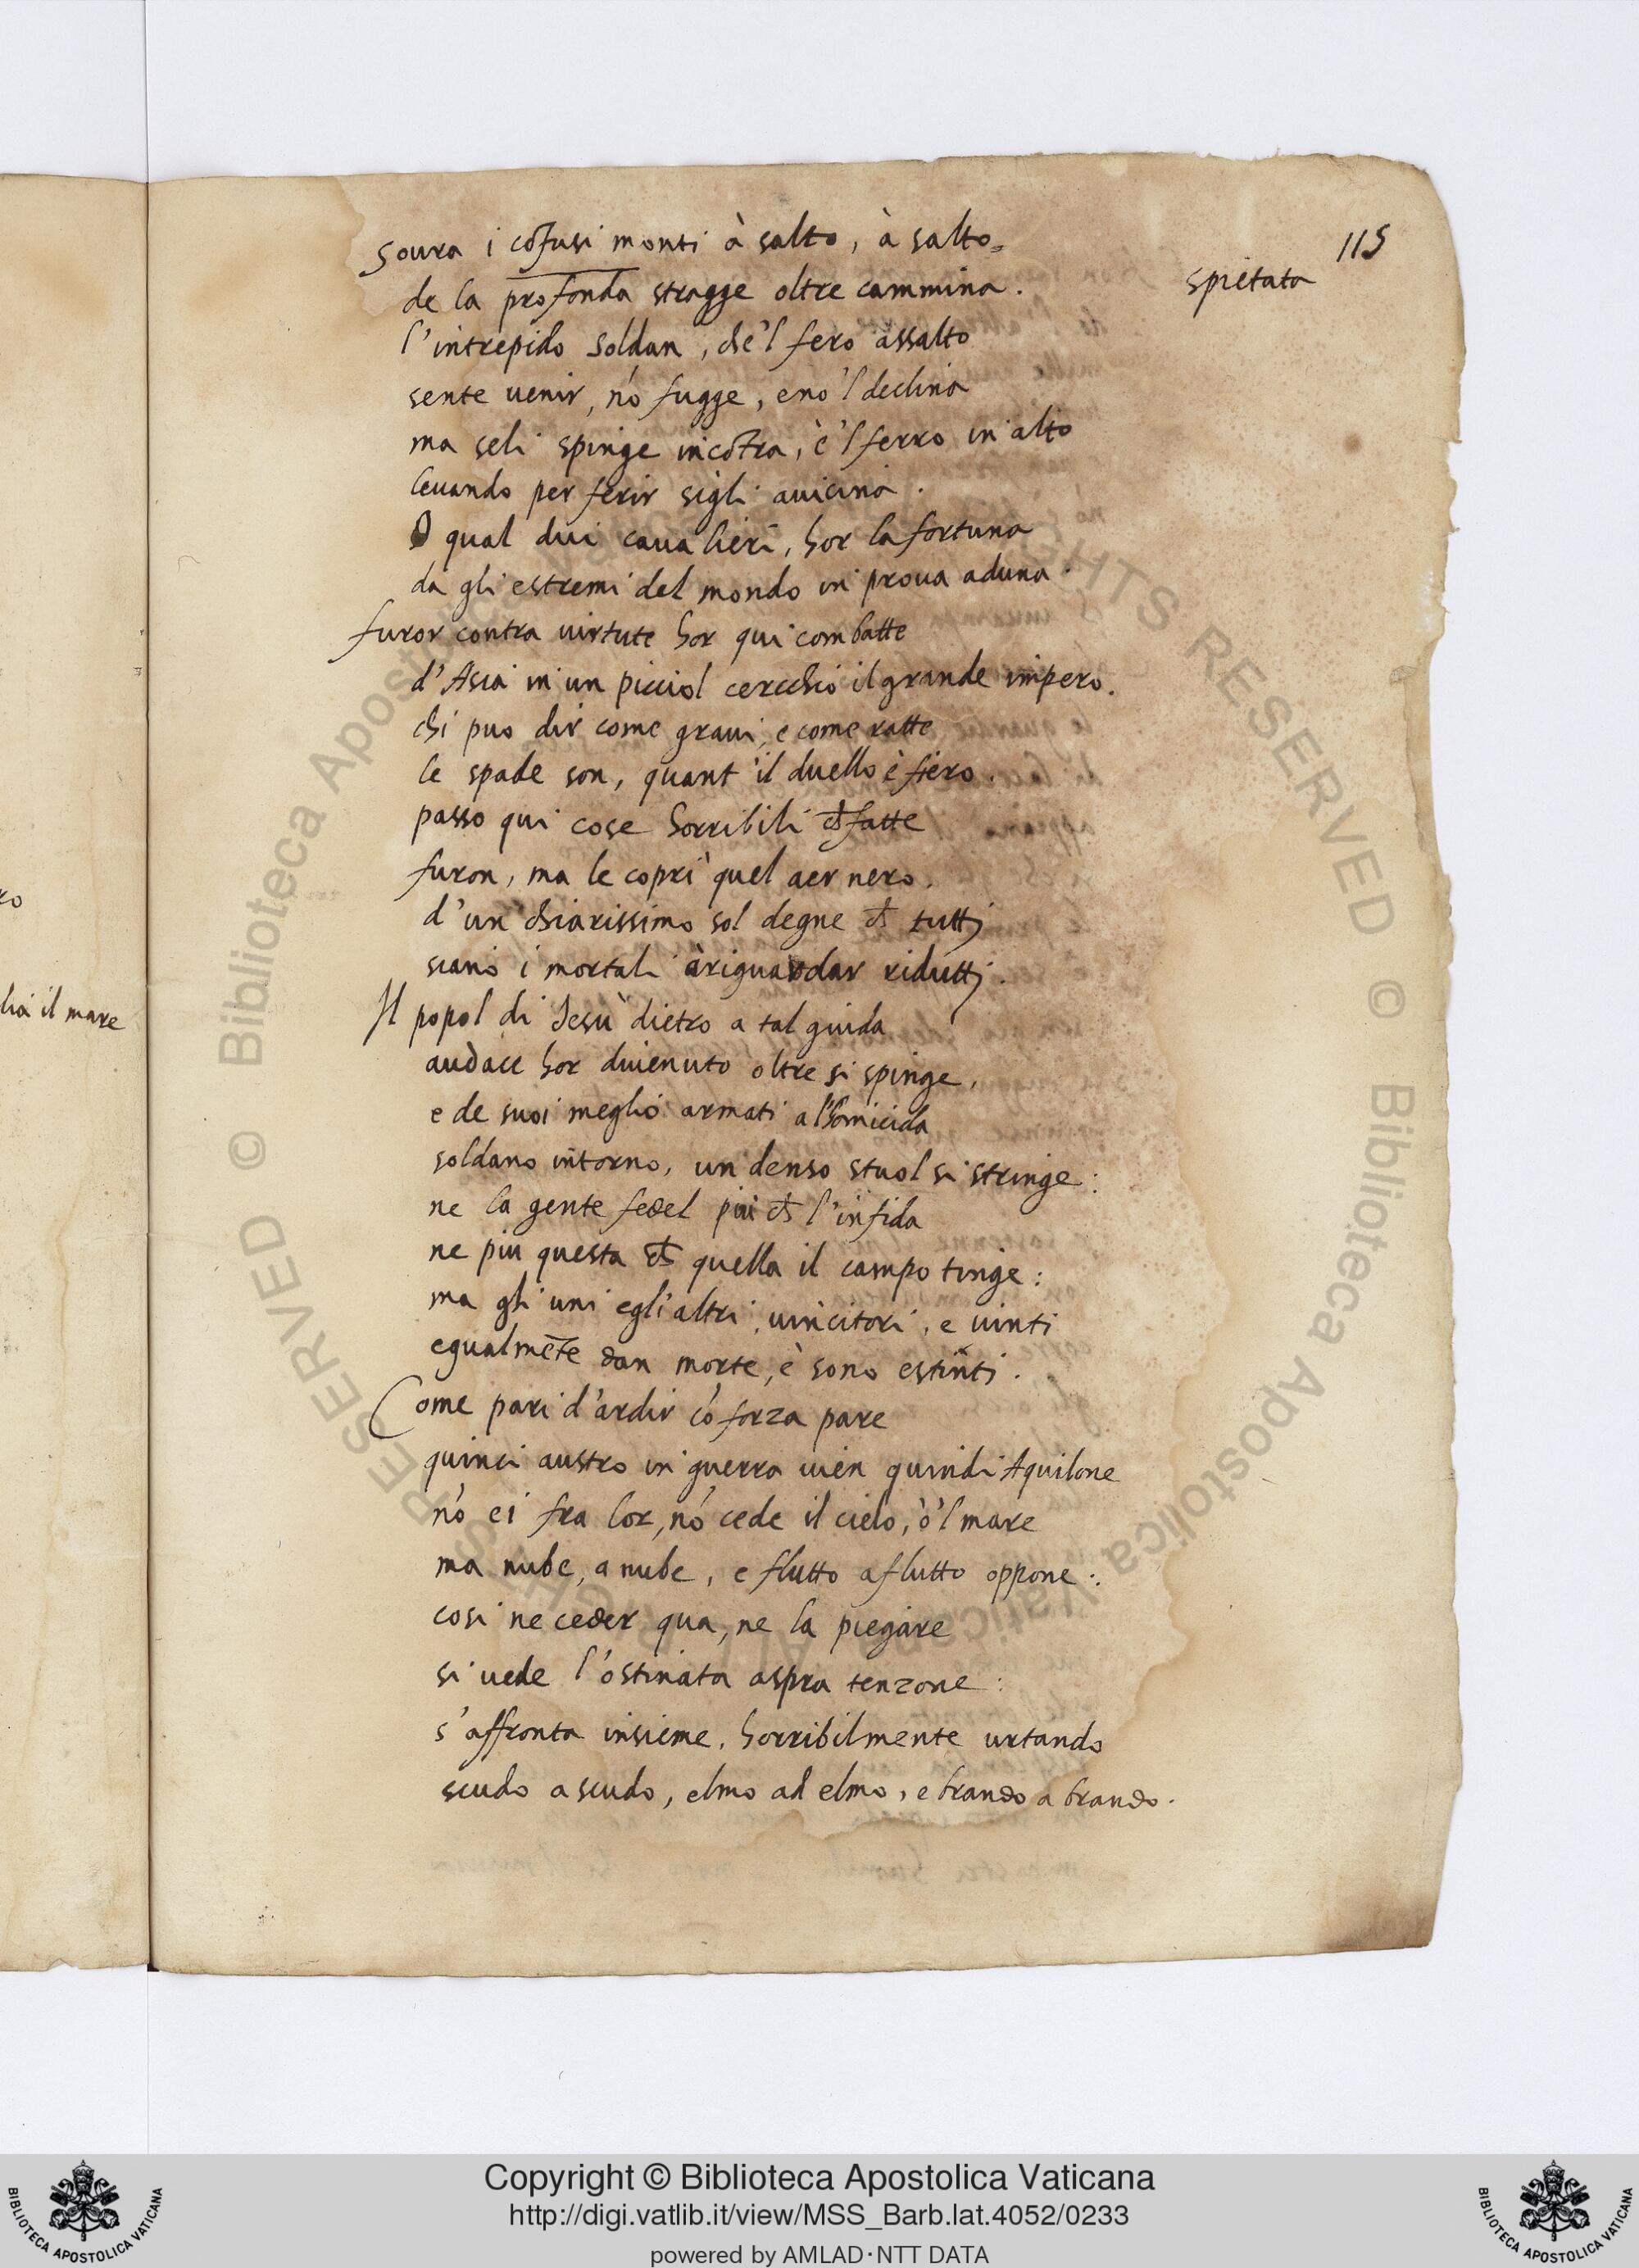 115
spietata
Soura i cõfusi monti à salto, à salto
de la profonda stragge oltre cammina.
l'intrepido Soldan, che'l fero assalto
sente uenir, nõ fugge, e nõ'l declina
ma seli spinge incõtra, è'l ferro in alto
leuando per ferir sigli auicina.
O qual dui caualieri, hor la fortuna
da gli estremi del mondo in proua aduna.
furor contra uirtute hor qui combatte
d'Asia in un picciol cerchio il grande impero.
chi puo dir come graui, e come ratte
le spade son, quant il duello è fiero.
passo qui cose horribili ch fatte
furon, ma le coprì quel aer nero.
d'un chiarissimo sol degne ch tutti
siano i mortali à riguardar ridutti.
Il popol di Jesù dietro a tal guida
audace hor diuenuto oltre si spinge,
e de suoi meglio armati a l'homicida
soldano intorno, un denso stuol si stringe:
ne la gente fedel più ch l'infida
ne più questa ch quella il campo tinge:
ma gli uni e gli altri, uincitori, e uinti
egualmẽte dan morte, è sono estinti.
Come pari d'ardir cõ forza pare
quinci austro in guerra uien quindi Aquilone
nõ ei fra lor, nõ cede il cielo, ò'l mare
ma nube, a nube, e flutto a flutto oppone:
cosi ne ceder qua, ne la piegare
si uede l'ostinata aspra tenzone:
s'affronta insieme, horribilmente urtando
scudo a scudo, elmo ad elmo, e brando a brando.
lia il mare
Copyright © Biblioteca Apostolica Vaticana
http://digi.vatlib.it/view/MSS_Barb.lat.4052/0233
powered by AMLAD·NTT DATA